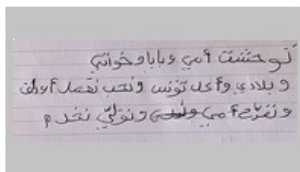 توحشت أمي وبابا وخواتي
وبلادي وأكل تونس ونحب نقعد
ونفرح أمي ونولي نخدم